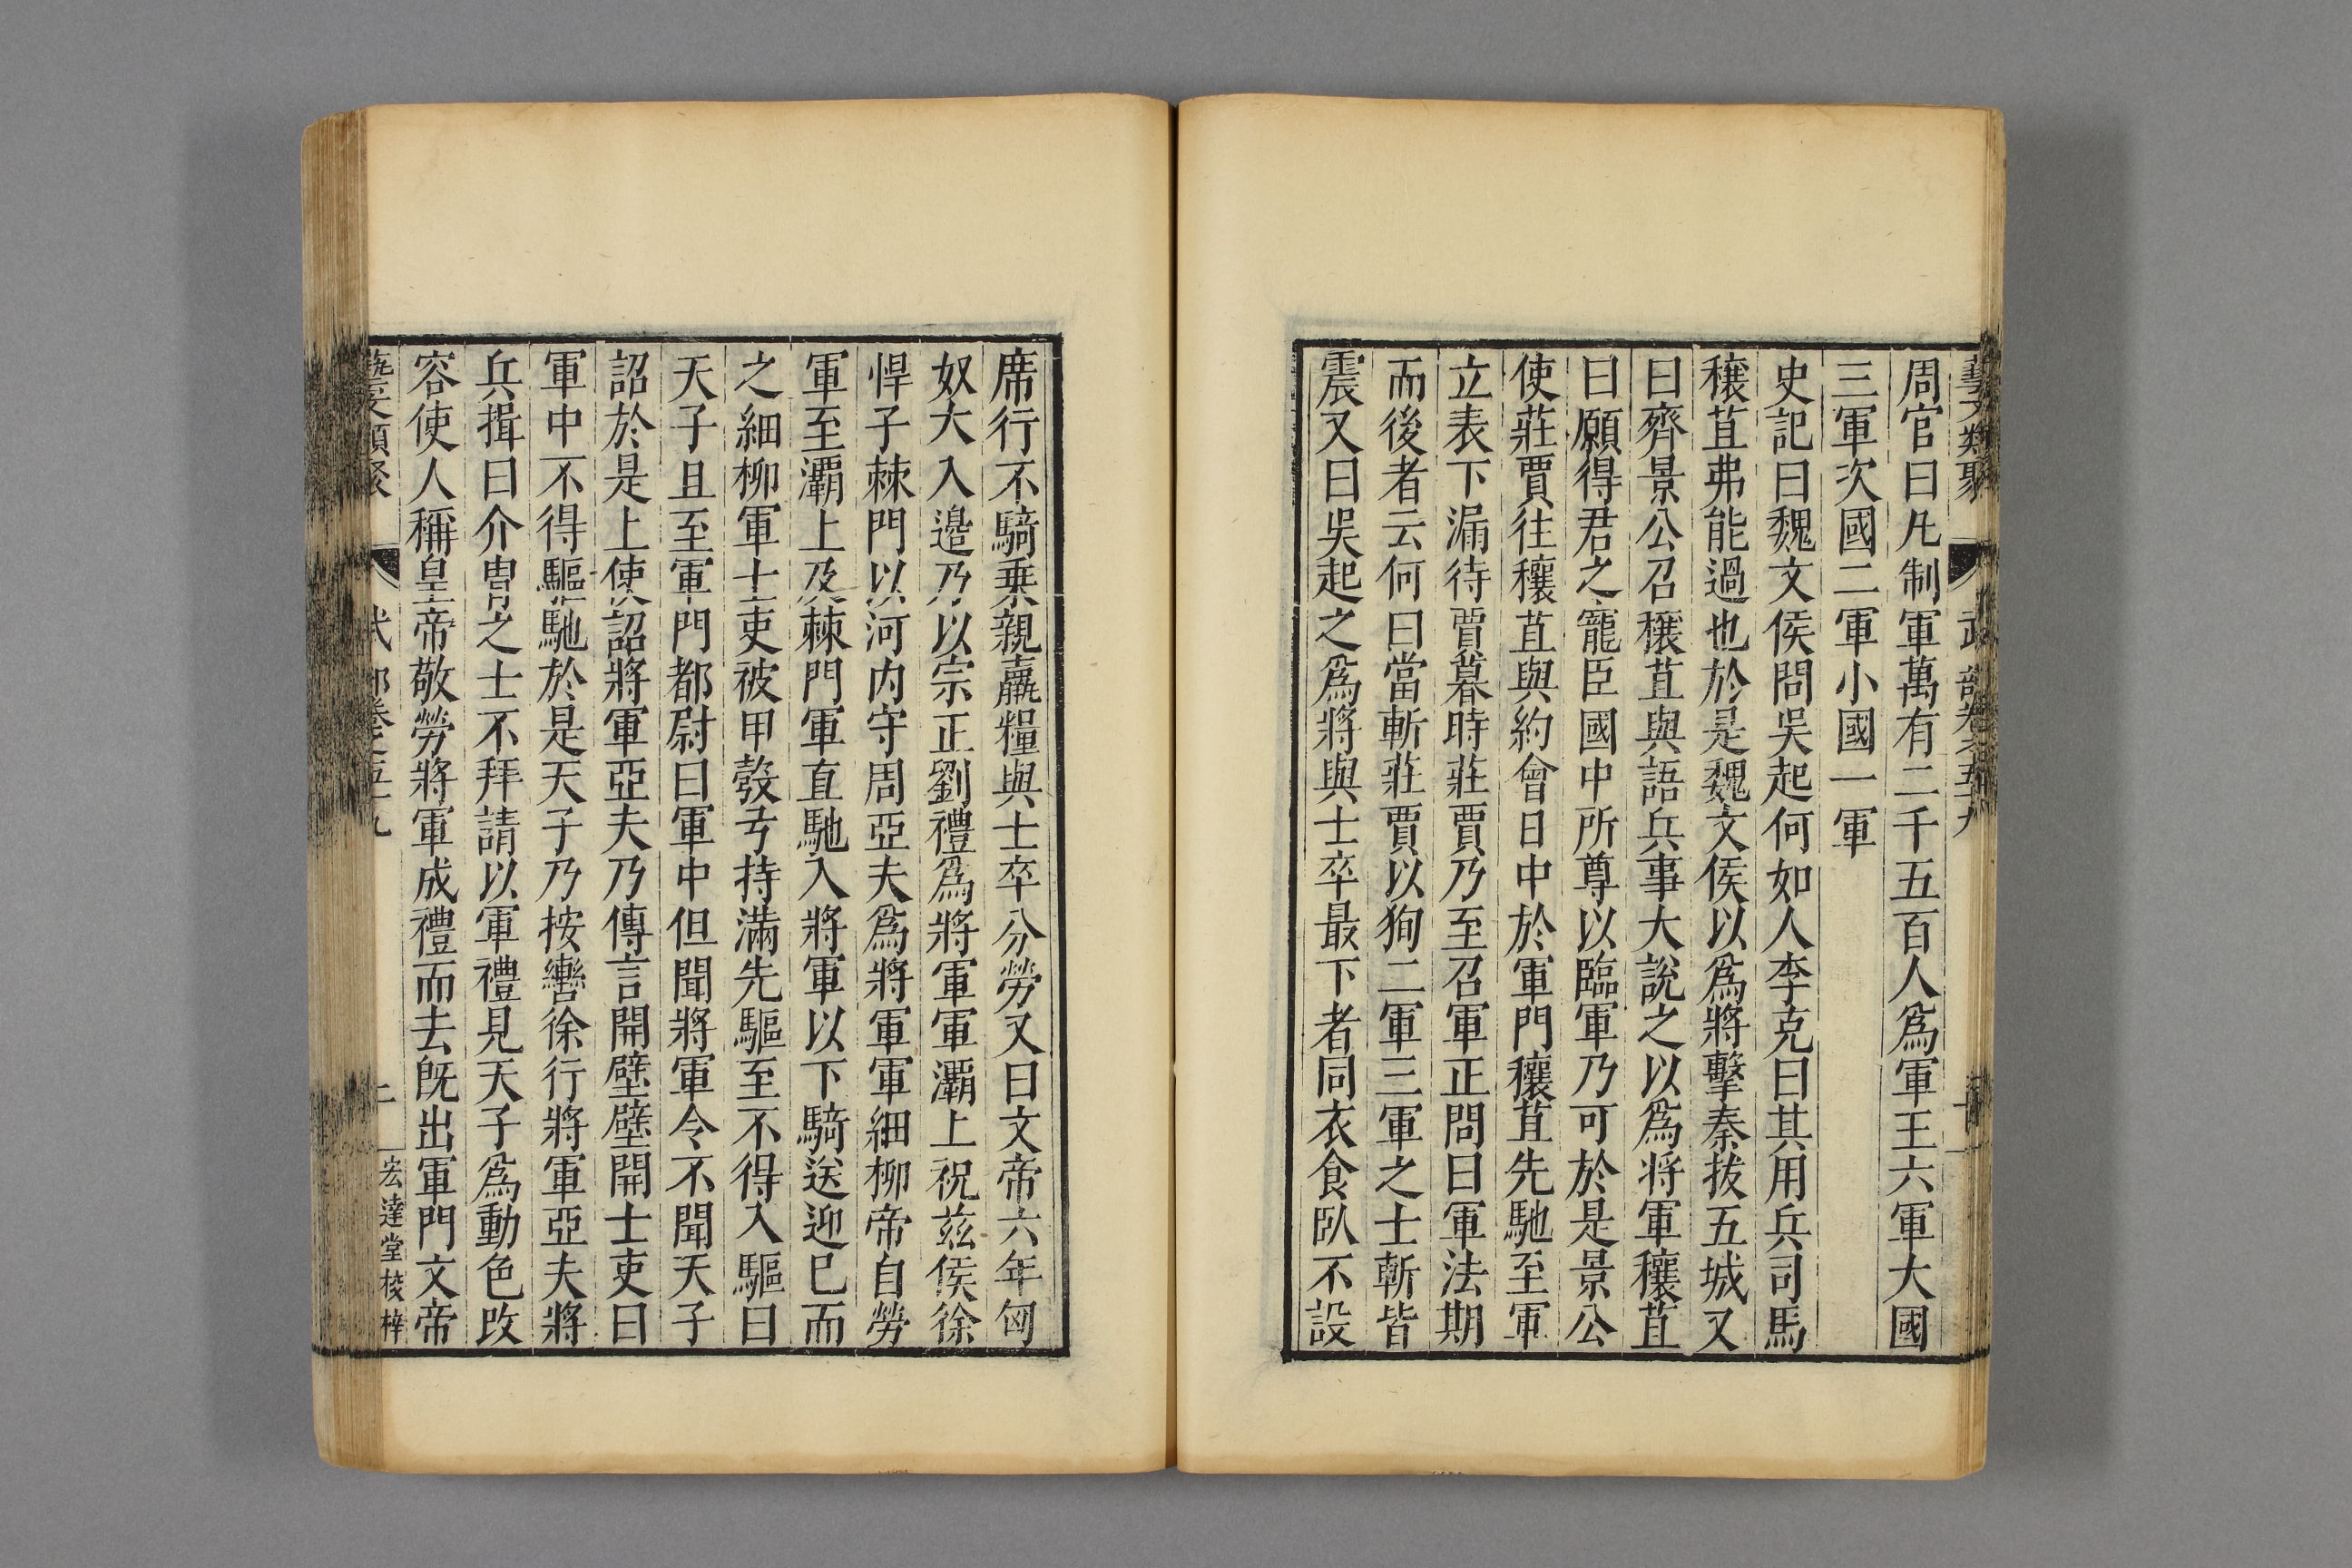 藝文類聚 武部卷之五十九
周官曰凡制軍萬有二千五百人爲軍王六軍大國
三軍次國二軍小國一軍
史記曰魏文侯問吳起何如人李克曰其用兵司馬
穰苴弗能過也於是魏文侯以爲將擊秦拔五城又
曰齊景公召穰苴與語兵事大說之以爲将軍穰苴
曰願得君之寵臣國中所尊以臨軍乃可於是景公
使莊賈往穰苴與約會日中於軍門穰苴先馳至軍
立表下漏待賈暮時莊賈乃至召軍正問曰軍法期
而後者云何曰當斬莊賈以狥二軍三軍之士斬皆
震又曰吳起之爲將與士卒最下者同衣食臥不設
席行不騎乗親羸糧與士卒分勞又曰文帝六年匈
奴大入邉乃以宗正劉禮爲將軍軍灞上祝兹侯徐
悍子棘門以河内守周亞夫爲將軍軍細柳帝自勞
軍至灞上及棘門軍直馳入將軍以下騎送迎已而
之細柳軍士吏被甲彀弓持滿先驅至不得入驅曰
天子且至軍門都尉曰軍中但聞將軍令不聞天子
詔於是上使詔將軍亞夫乃傳言開壁壁開士吏曰
軍中不得驅馳於是天子乃按轡徐行將軍亞夫將
兵揖曰介冑之士不拜請以軍禮見天子爲動色改
容使人稱皇帝敬勞將軍成禮而去旣出軍門文帝
藝文類聚 武部卷之五十九 上 宏達堂校梓